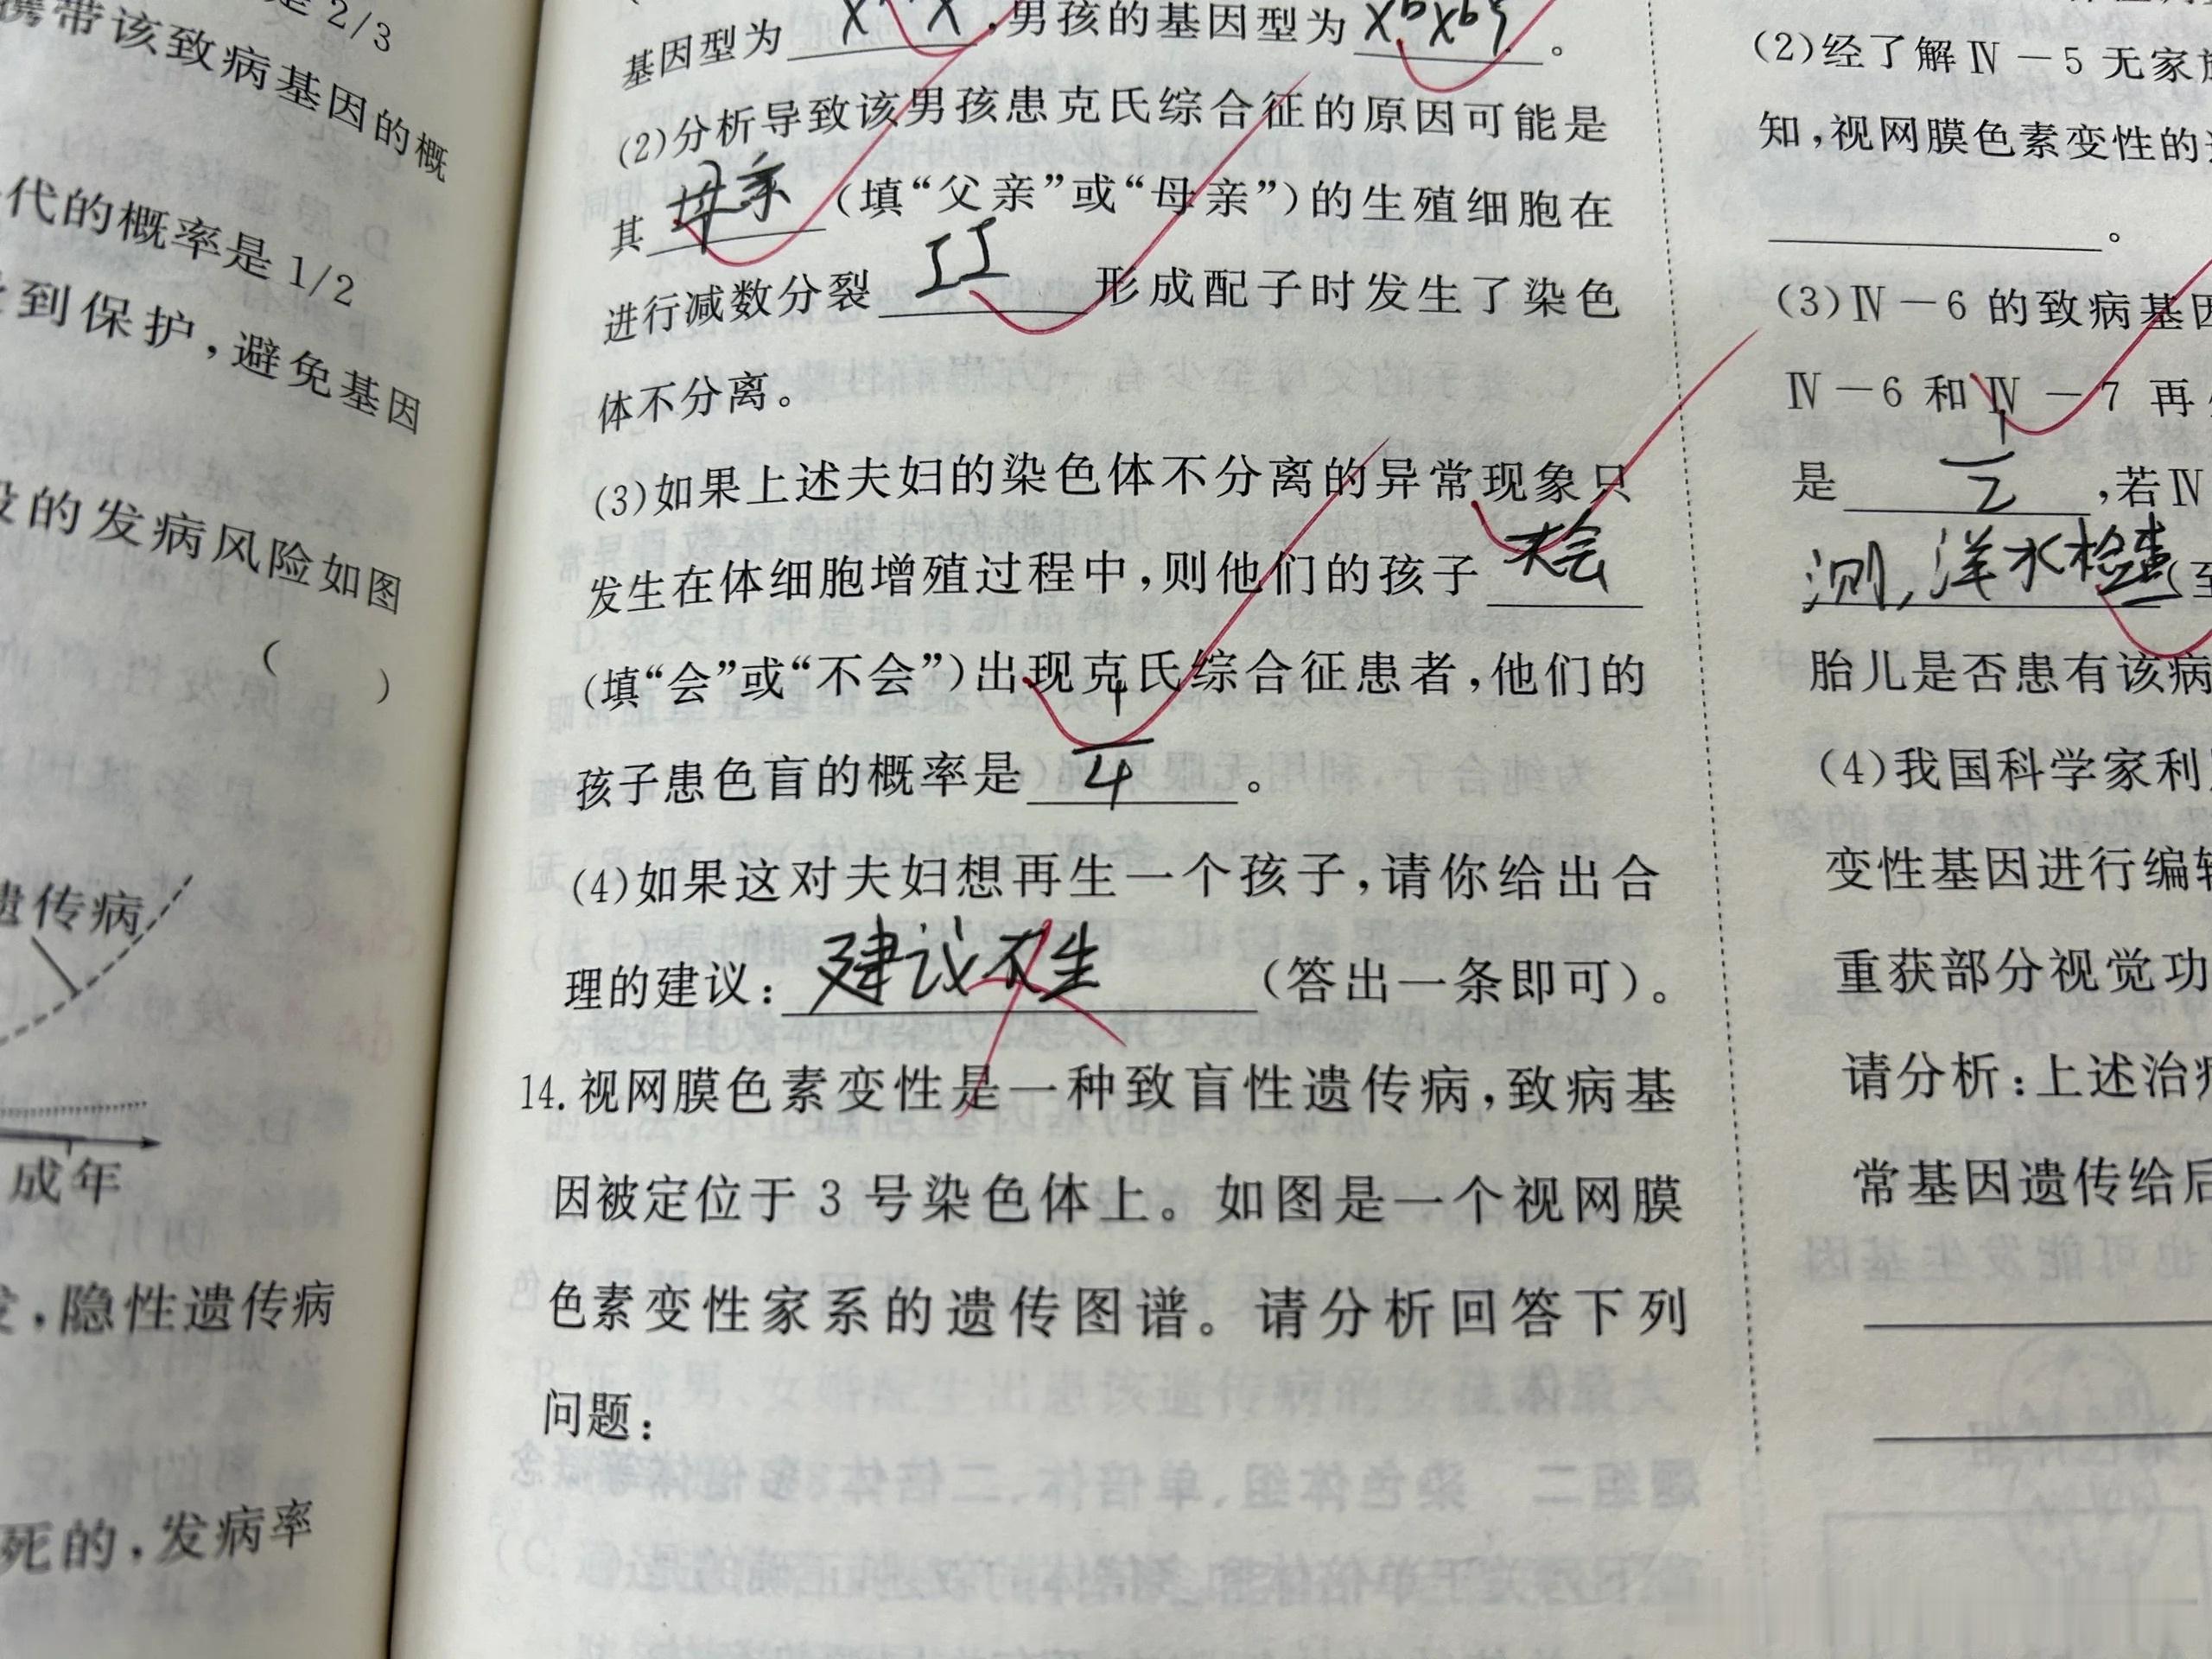 是2/3
携带该致病基因的概
代的概率是1/2
到保护，避免基因
的发病风险如图
（　　）
遗传病
成年
，隐性遗传病
死的，发病率
基因型为，男孩的基因型为 XᵇXᵇY。
(2)分析导致该男孩患克氏综合征的原因可能是
其母亲（填“父亲”或“母亲”）的生殖细胞在
进行减数分裂 II 形成配子时发生了染色
体不分离。
(3)如果上述夫妇的染色体不分离的异常现象只
发生在体细胞增殖过程中，则他们的孩子不会
（填“会”或“不会”）出现克氏综合征患者，他们的
孩子患色盲的概率是 1/4。
(4)如果这对夫妇想再生一个孩子，请你给出合
理的建议：建议不生（答出一条即可）。
14.视网膜色素变性是一种致盲性遗传病，致病基
因被定位于3号染色体上。如图是一个视网膜
色素变性家系的遗传图谱。请分析回答下列
问题：
(2)经了解Ⅳ－5无家
知，视网膜色素变性的
。
(3)Ⅳ－6的致病基因
Ⅳ－6和Ⅳ－7再
是 1/2，若Ⅳ
测，洋水检查（至
胎儿是否患有该病
(4)我国科学家利
变性基因进行编
重获部分视觉功
请分析：上述治
常基因遗传给后